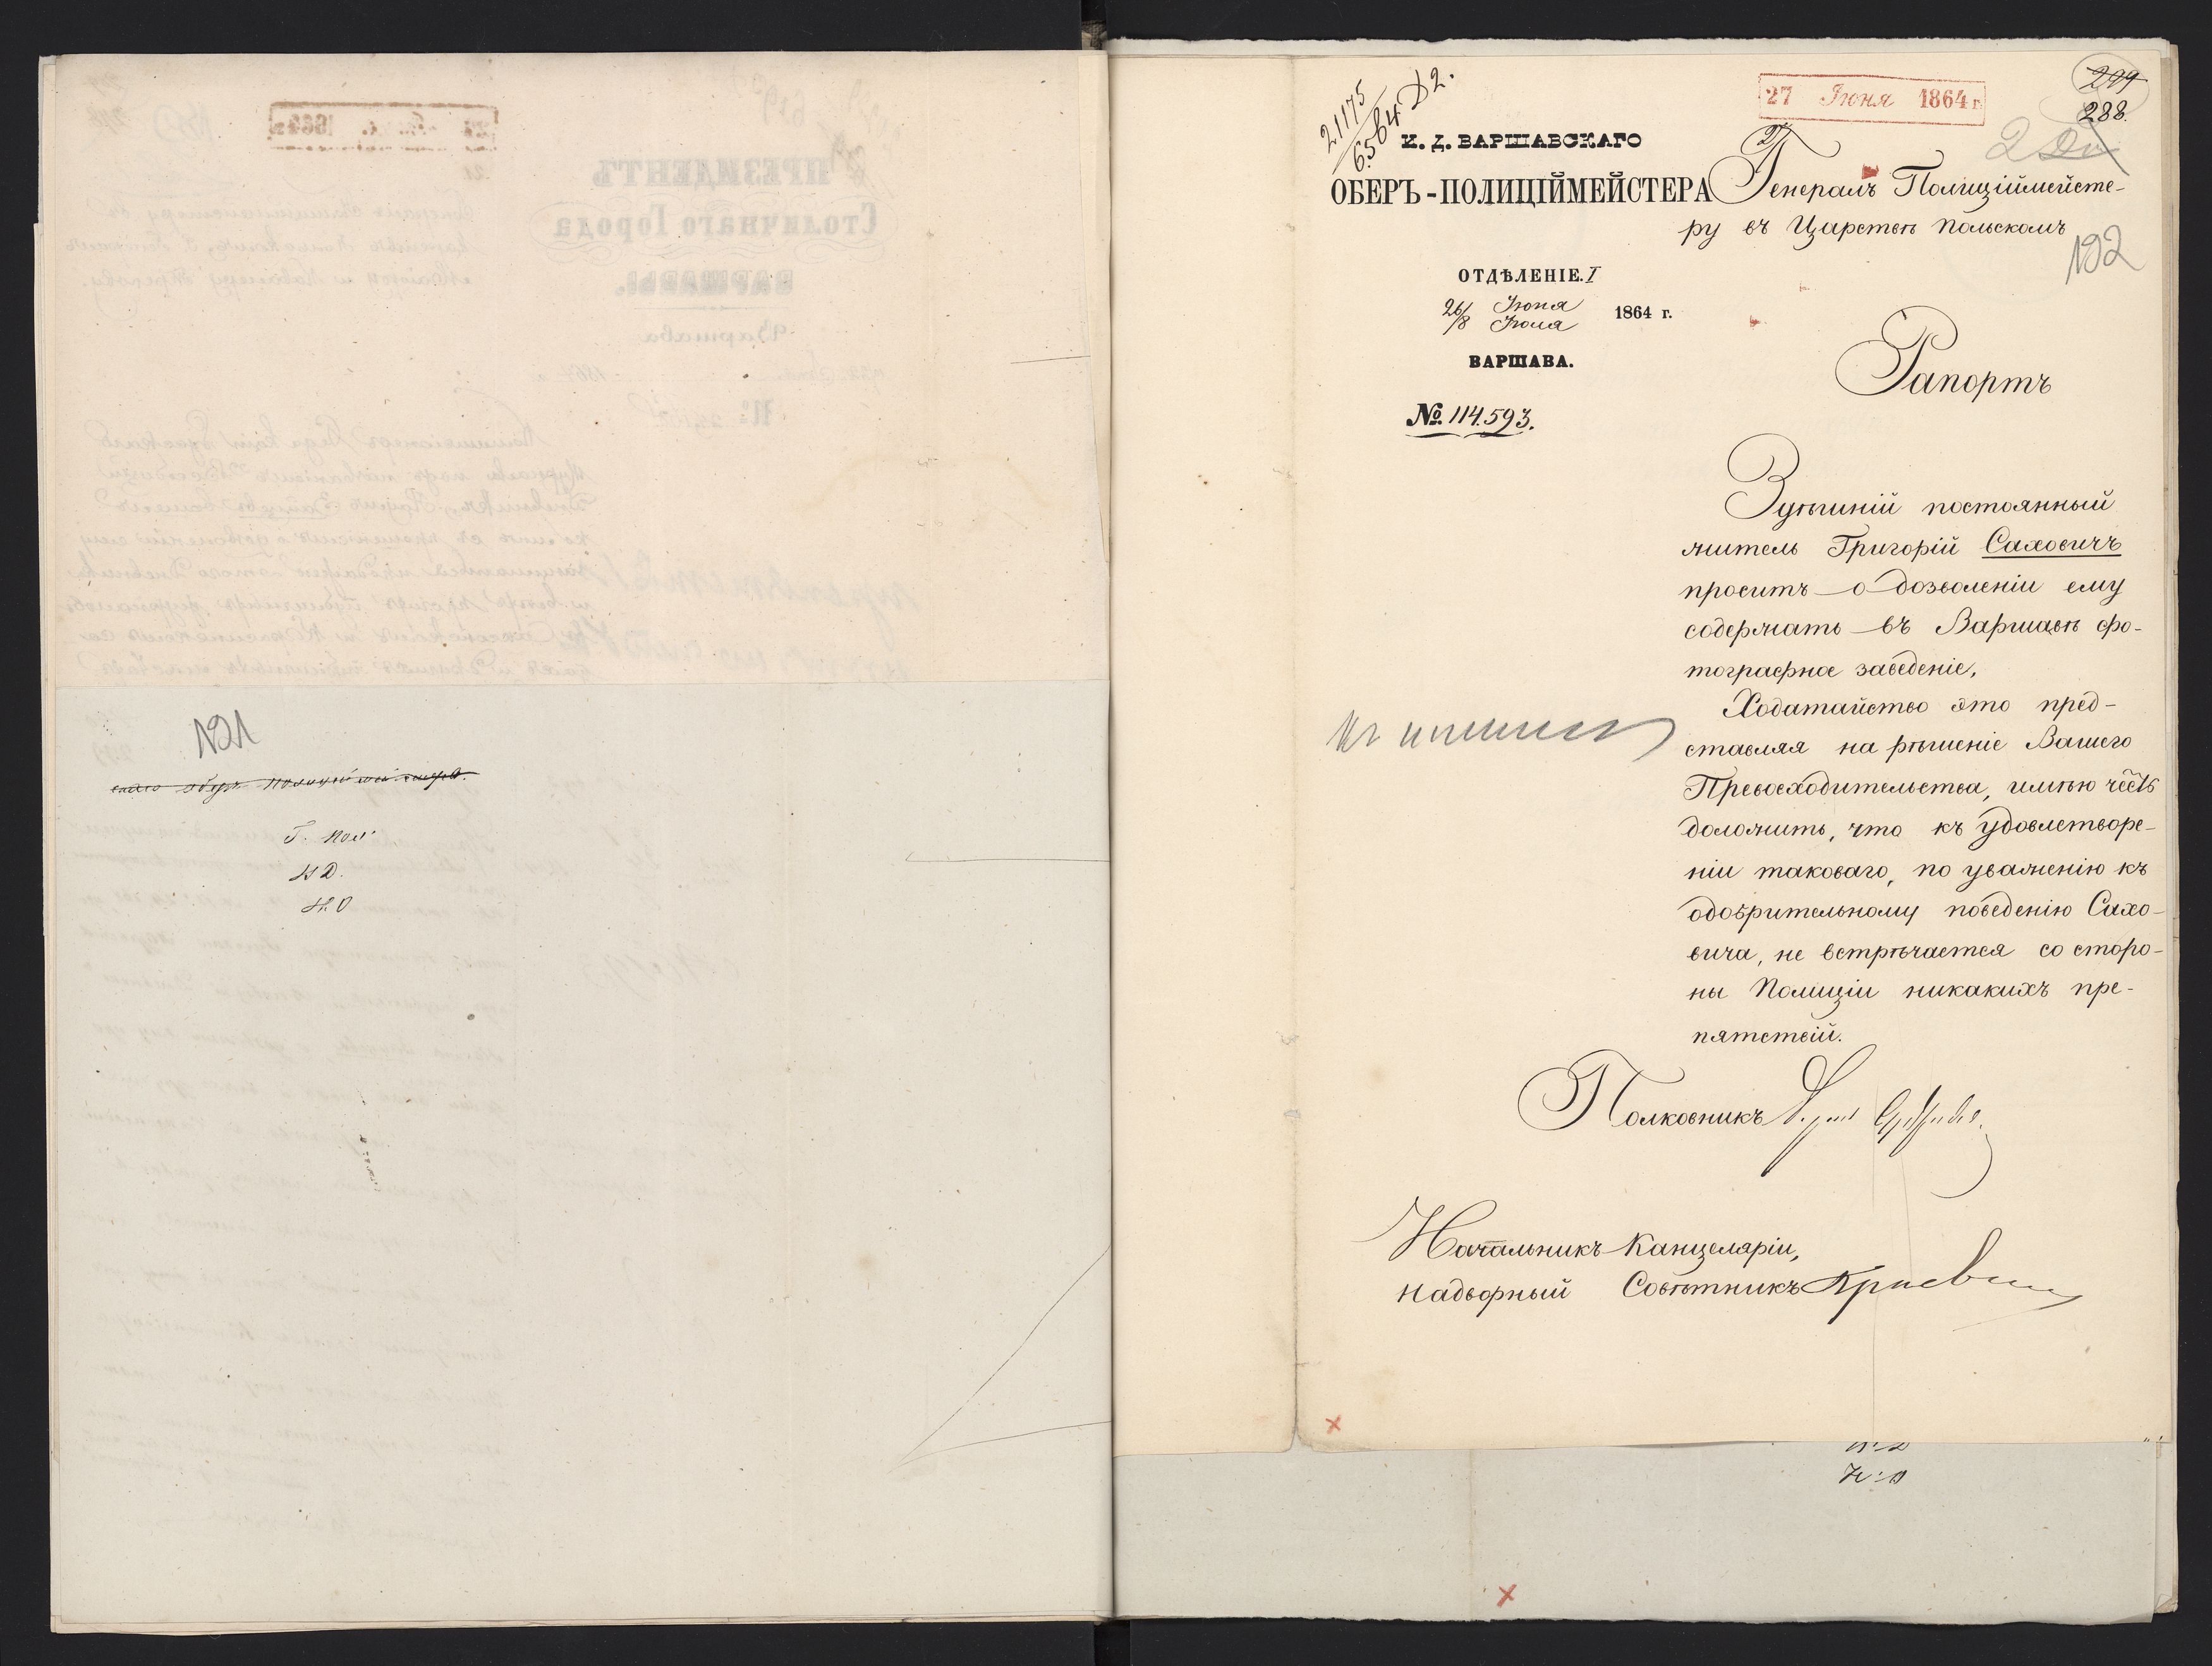 121
скаго оберъ полиціймейстера.
Г. Пол.
21175
6564 Д 2.
И. Д. ВАРШАВСКАГО
ОБЕРЪ-ПОЛИЦІЙМЕЙСТЕРА
ОТДѢЛЕНІЕ. I
26/8 Іюня
Іюля 1864 г.
ВАРШАВА.
№ 114.593.
27 Іюня 1864 г.
299
288.
Генералъ Полиціймейсте-
ру въ Царствѣ Польскомъ
192
Рапортъ
Здѣшній постоянный
житель Григорій Саховичъ
проситъ о дозволеніи ему
содержать въ Варшавѣ фо-
тографное заведеніе.
Ходатайство это пред-
ставляя на рѣшеніе Вашего
Превосходительства, имѣю честь
доложить, что къ удовлетворе-
ніи таковаго, по уваженію къ
одобрительному поведенію Сахо-
вича, не встрѣчается со сторо-
ны Полиціи никакихъ пре-
пятствій.
Полковникъ
Начальникъ Канцеляріи,
Надворный Совѣтникъ